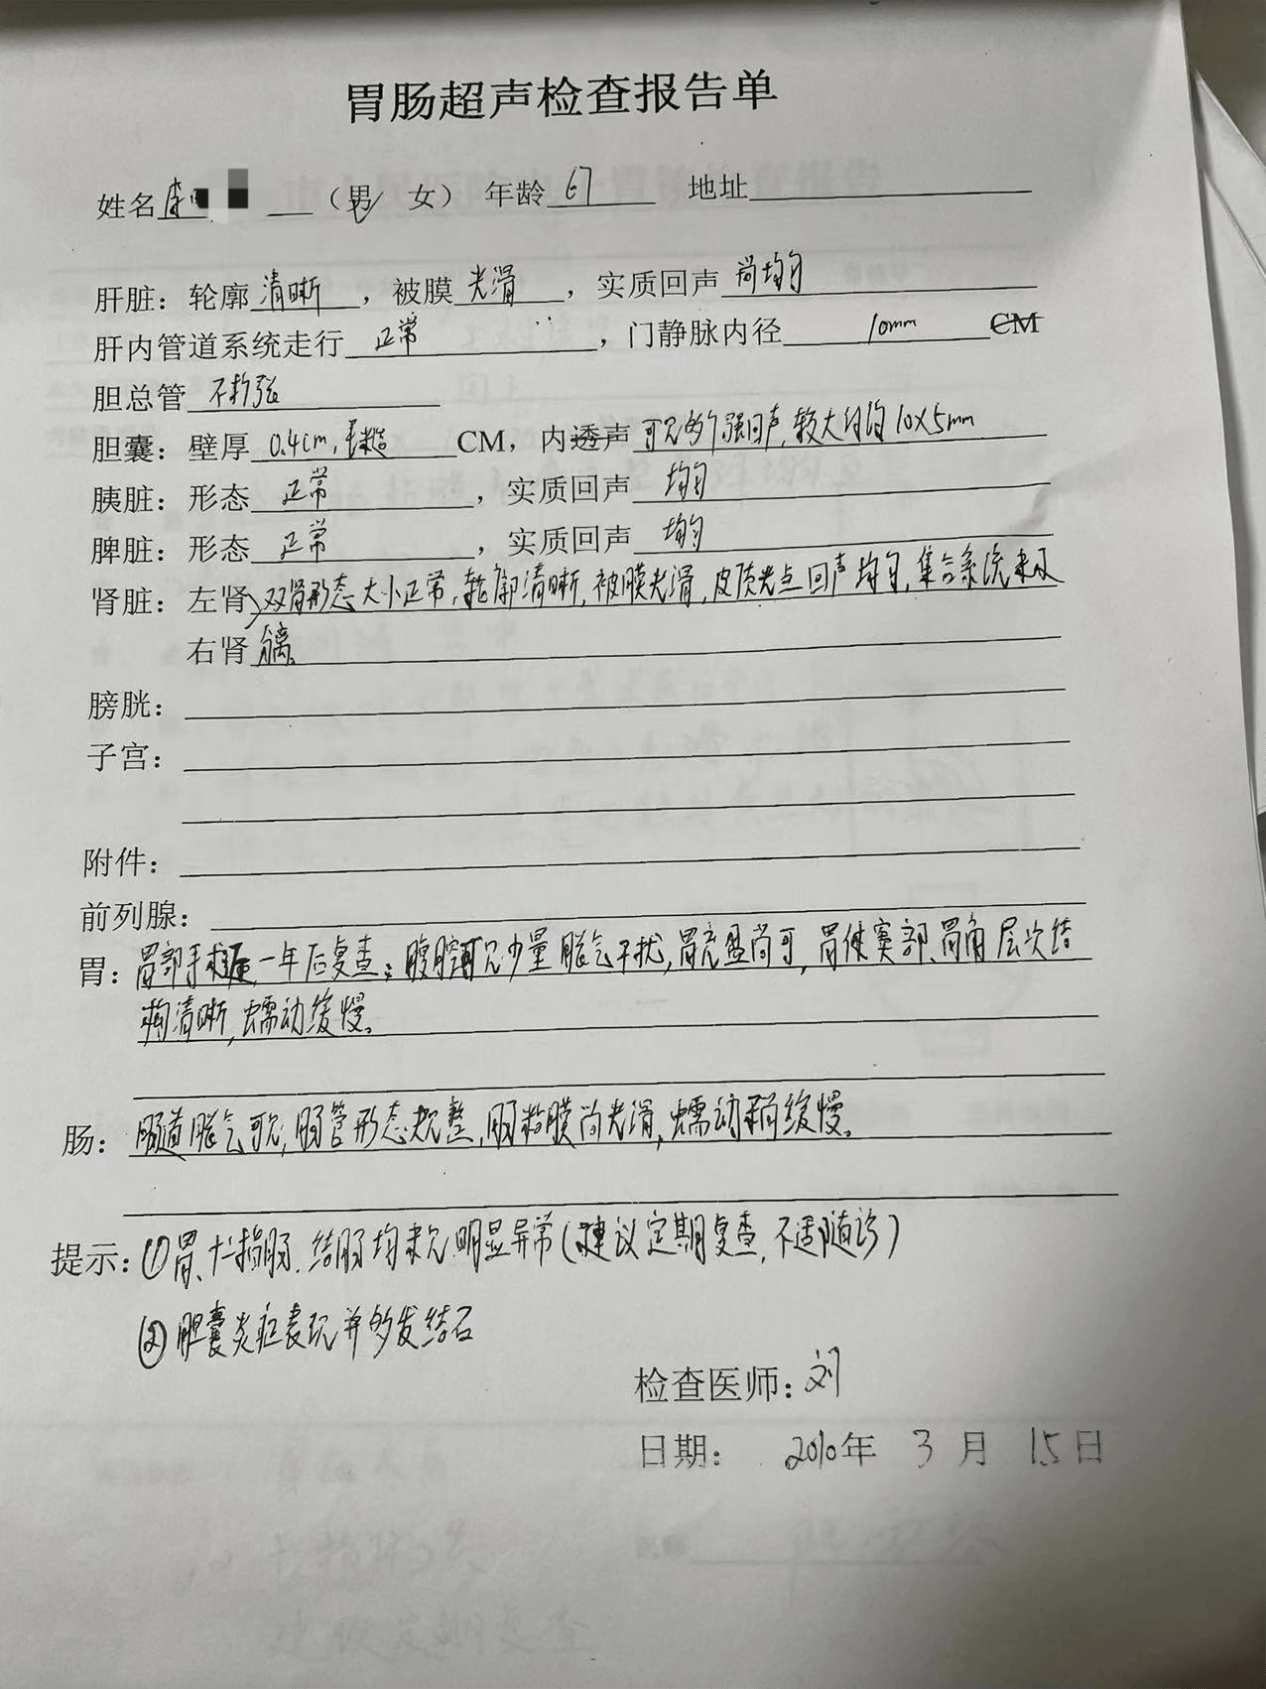 胃肠超声检查报告单
姓名 李 （男/ 女） 年龄 67 地址
肝脏：轮廓 清晰 ，被膜 光滑 ，实质回声 尚均匀
肝内管道系统走行 正常 ，门静脉内径 10mm CM
胆总管 不扩张
胆囊：壁厚 0.4cm，毛糙 CM，内透声 可见多个强回声，较大约 10×5mm
胰脏：形态 正常 ，实质回声 均匀
脾脏：形态 正常 ，实质回声 均匀
肾脏：左肾 双肾形态大小正常，轮廓清晰，被膜光滑，皮质光点回声均匀，集合系统未及
右肾 分离。
膀胱：
子宫：
附件：
前列腺：
胃：胃部手术后一年后复查：腹腔可见少量肠气干扰，胃充盈尚可，胃体窦部、胃角层次结
构清晰，蠕动缓慢。
肠：肠道肠气可见，肠管形态规整，肠粘膜尚光滑，蠕动稍缓慢。
提示：①胃、十二指肠、结肠均未见明显异常（建议定期复查，不适随诊）
②胆囊炎症表现并多发结石
检查医师：刘
日期： 2010年 3 月 15日